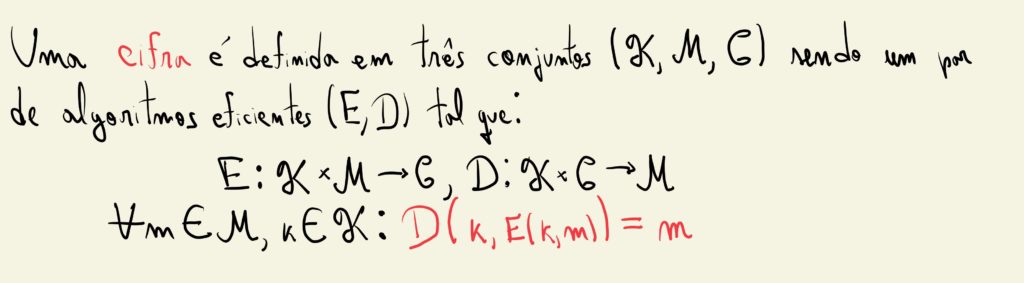 Uma cifra é definida em três conjuntos (𝒦, ℳ, 𝒞) sendo um par
de algoritmos eficientes (E, D) tal que:
E: 𝒦 × ℳ → 𝒞, D: 𝒦 × 𝒞 → ℳ
∀m ∈ ℳ, k ∈ 𝒦: D(k, E(k, m)) = m